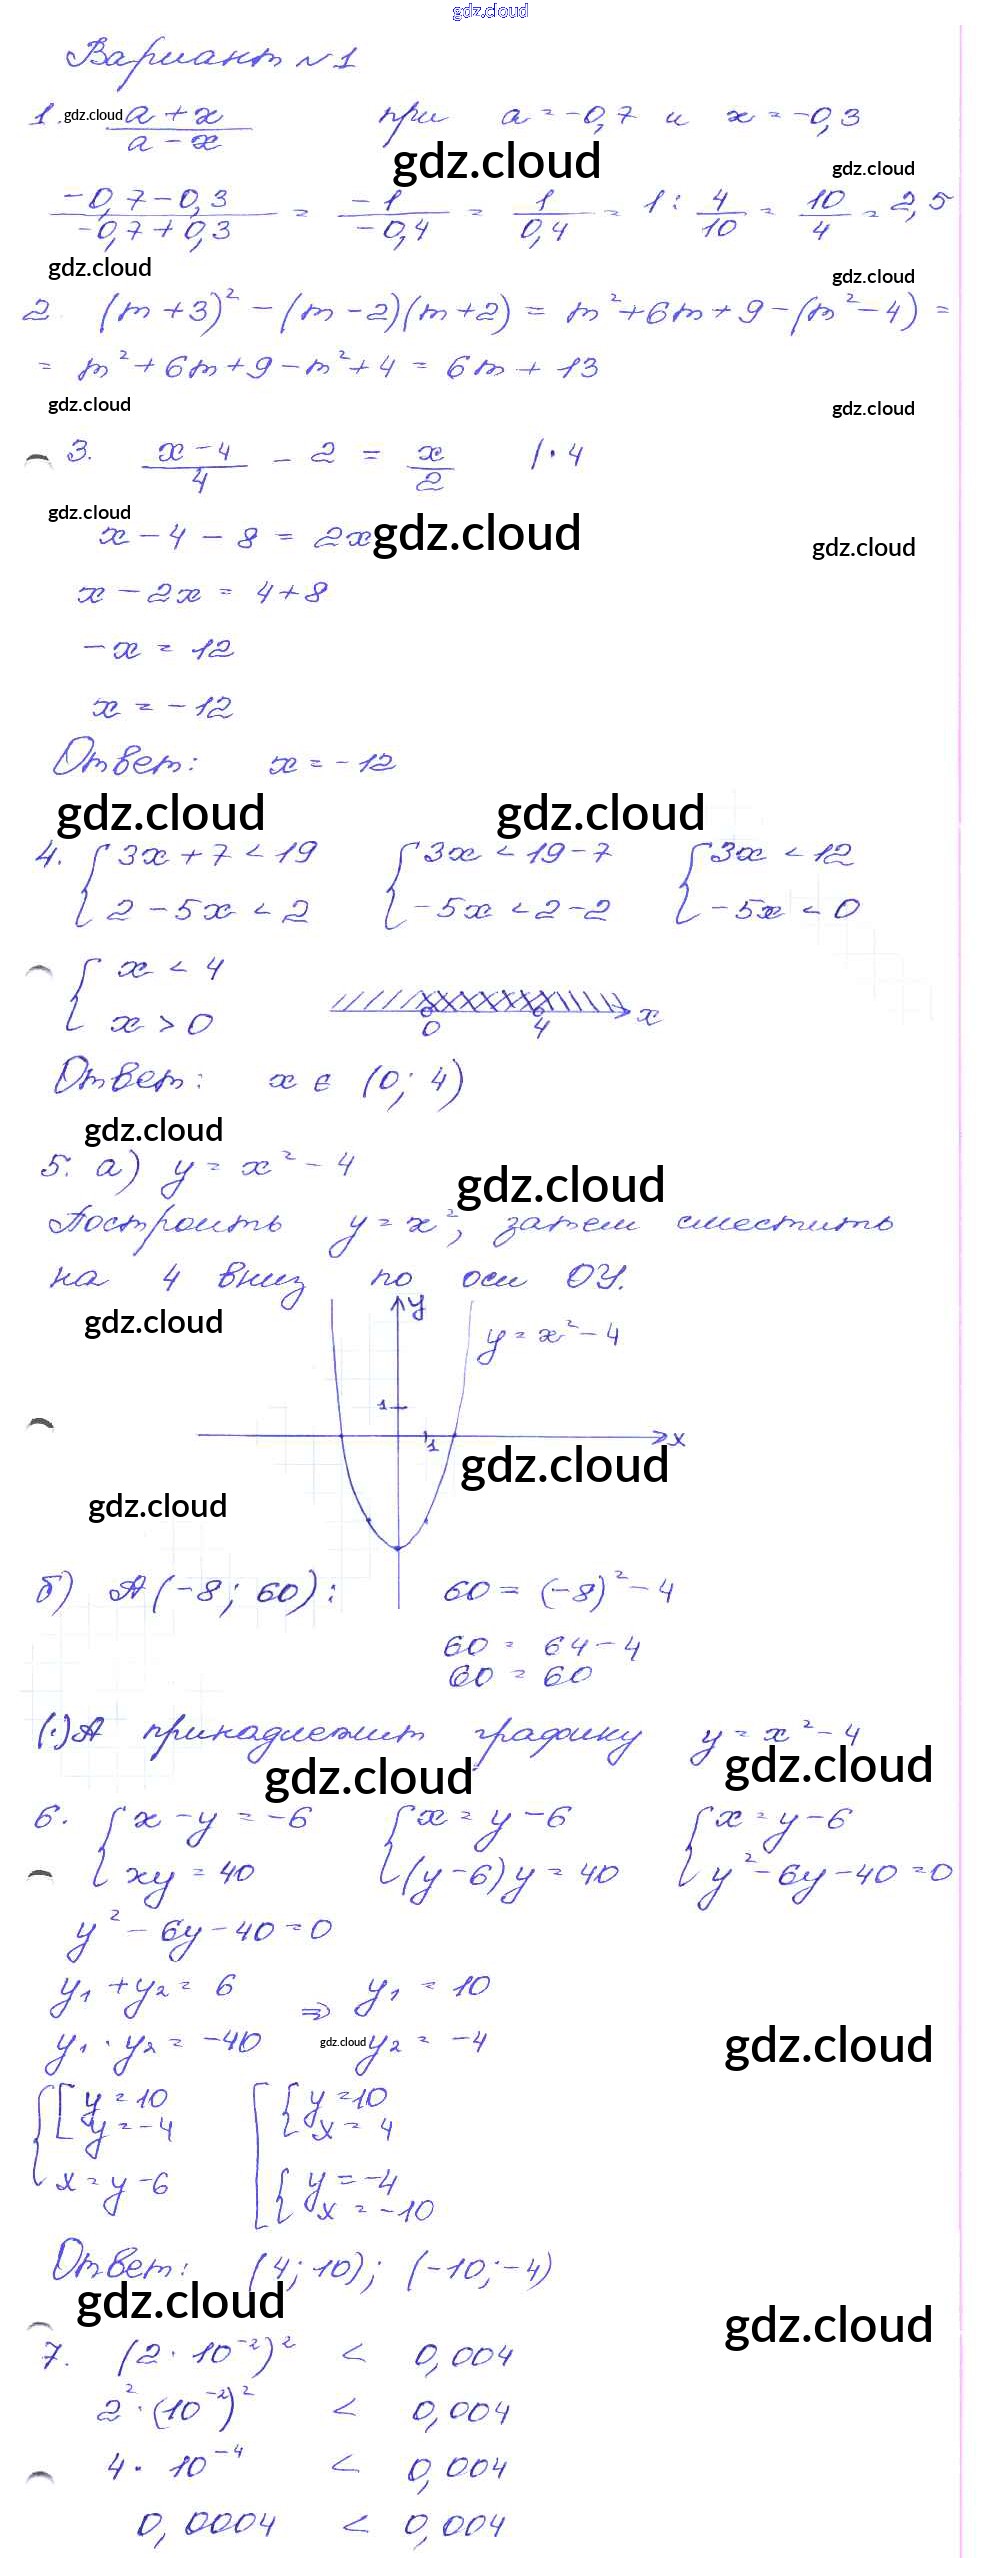 gdz.cloud
Вариант №1
1. gdz.cloud (a + x)/(a - x) при a = -0,7 и x = -0,3
gdz.cloud gdz.cloud
(-0,7 - 0,3)/(-0,7 + 0,3) = (-1)/(-0,4) = 1/0,4 = 1 : 4/10 = 10/4 = 2,5
gdz.cloud gdz.cloud
2. (m + 3)² - (m - 2)(m + 2) = m² + 6m + 9 - (m² - 4) =
= m² + 6m + 9 - m² + 4 = 6m + 13
gdz.cloud gdz.cloud
3. (x - 4)/4 - 2 = x/2 | · 4
gdz.cloud
x - 4 - 8 = 2x gdz.cloud gdz.cloud
x - 2x = 4 + 8
-x = 12
x = -12
Ответ: x = -12
gdz.cloud gdz.cloud
4. { 3x + 7 < 19 { 3x < 19 - 7 { 3x < 12
{ 2 - 5x < 2 { -5x < 2 - 2 { -5x < 0
{ x < 4
{ x > 0 0 4 x
Ответ: x ∈ (0; 4)
gdz.cloud
5. а) y = x² - 4
gdz.cloud
Построить y = x², затем сместить
на 4 вниз по оси ОУ.
gdz.cloud y
y = x² - 4
1
1 x
gdz.cloud
gdz.cloud
б) А(-8; 60): 60 = (-8)² - 4
60 = 64 - 4
60 = 60
(·)А принадлежит графику y = x² - 4
gdz.cloud gdz.cloud
6. { x - y = -6 { x = y - 6 { x = y - 6
{ xy = 40 { (y - 6)y = 40 { y² - 6y - 40 = 0
y² - 6y - 40 = 0
y₁ + y₂ = 6 ⇒ y₁ = 10
y₁ · y₂ = -40 gdz.cloud y₂ = -4 gdz.cloud
{ [ y = 10 [ { y = 10
{ [ y = -4 [ { x = 4
{ x = y - 6 [ { y = -4
[ { x = -10
Ответ: (4; 10); (-10; -4)
gdz.cloud gdz.cloud
7. (2 · 10⁻²)² < 0,004
2² · (10⁻²)² < 0,004
4 · 10⁻⁴ < 0,004
0,0004 < 0,004